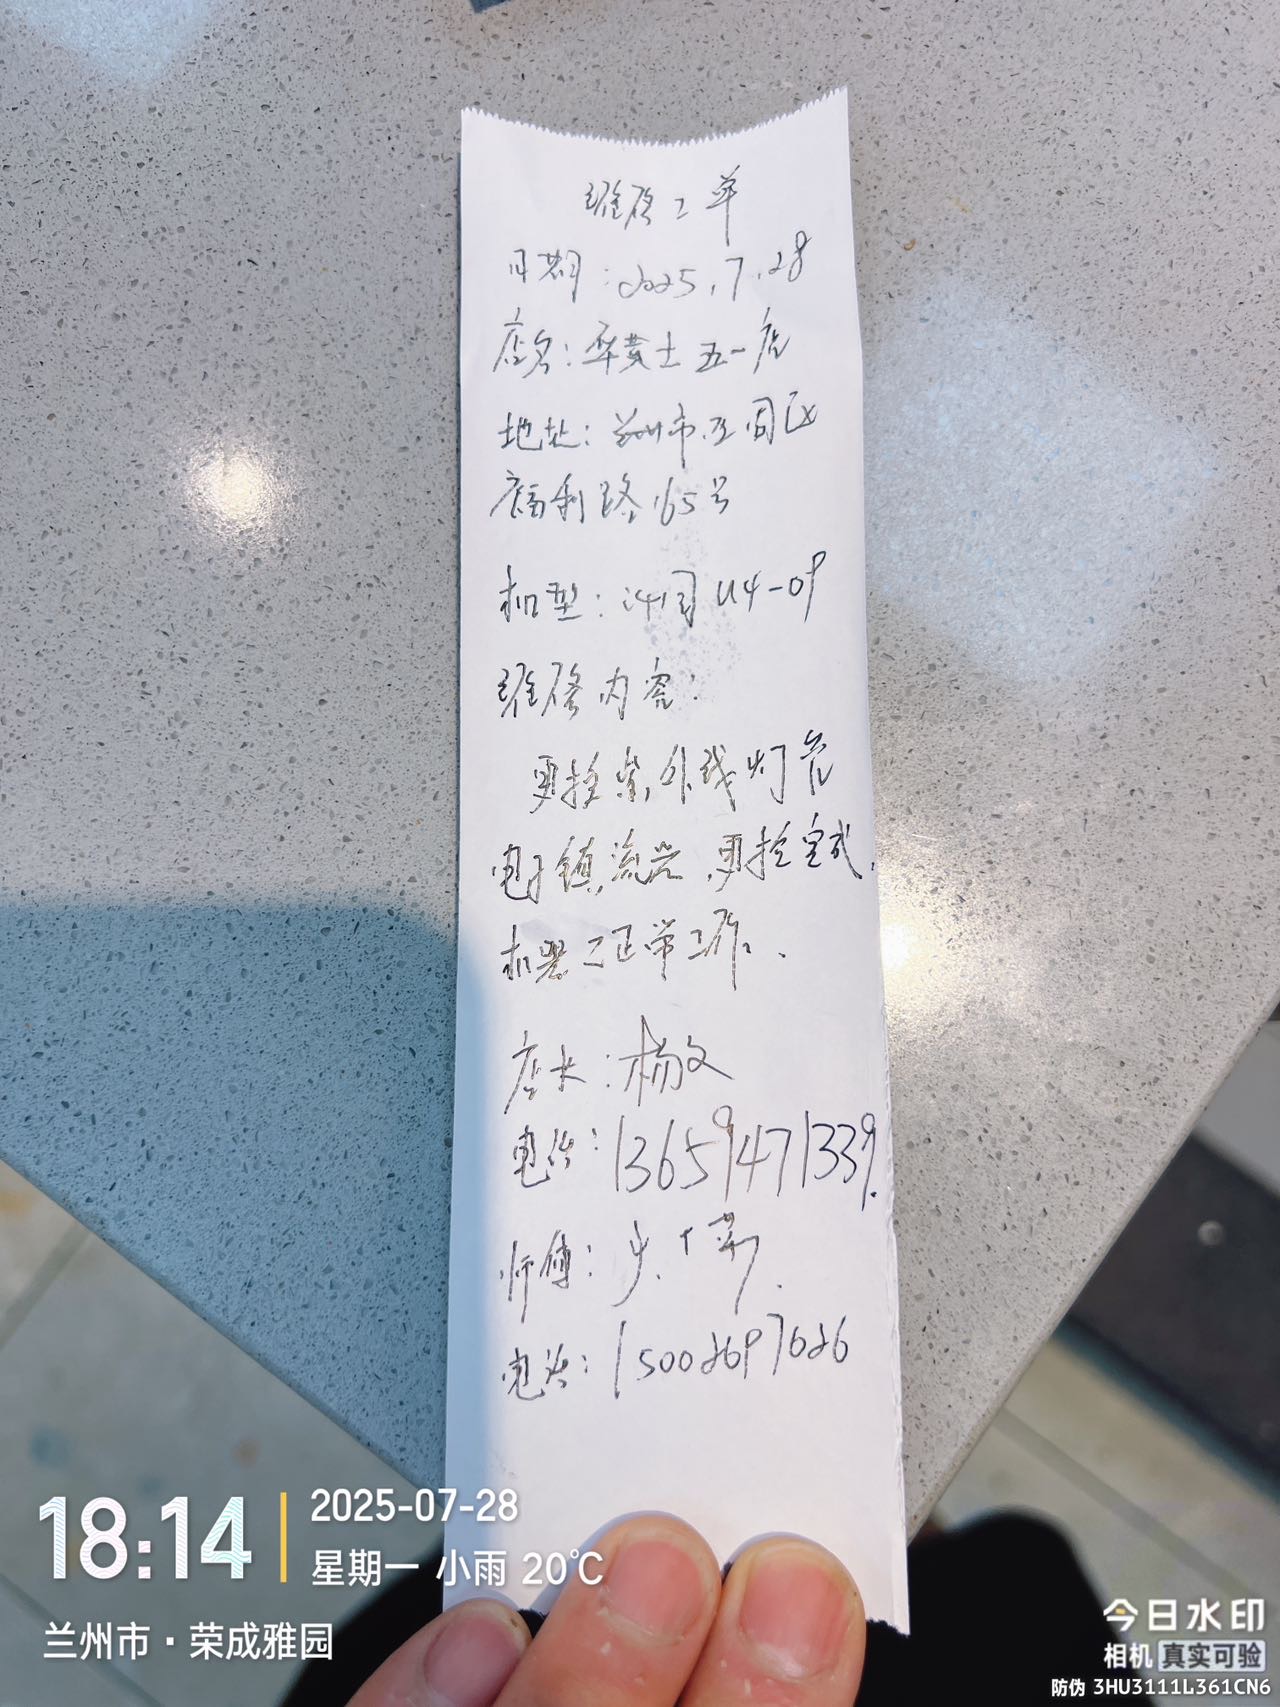 维修工单
日期：2025.7.28
店名：华莱士五一店
地址：兰州市七里河区
福利路165号
机型：沁园U4-09
维修内容：
更换紫外线灯管
电子镇流器，更换完成，
机器已正常工作。
店长：杨文
电话：13659471339.
师傅：
电话：15002697626
18:14
2025-07-28
星期一 小雨 20℃
兰州市·荣成雅园
今日水印
相机 真实可验
防伪 3HU3111L361CN6